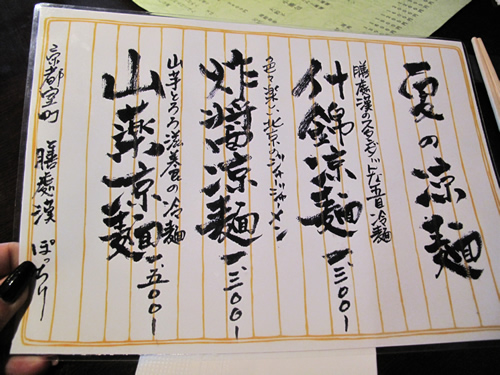 夏の涼麺
膳處漢のスタンダードな五目冷麺
什錦涼麺 一、三〇〇ー
色々楽しい北京のジャージャーメン
炸醤涼麺 一、三〇〇ー
山芋とろろ滋養の冷麺
山薬涼麺 一、五〇〇ー
京都室町 膳處漢 ぽっちり